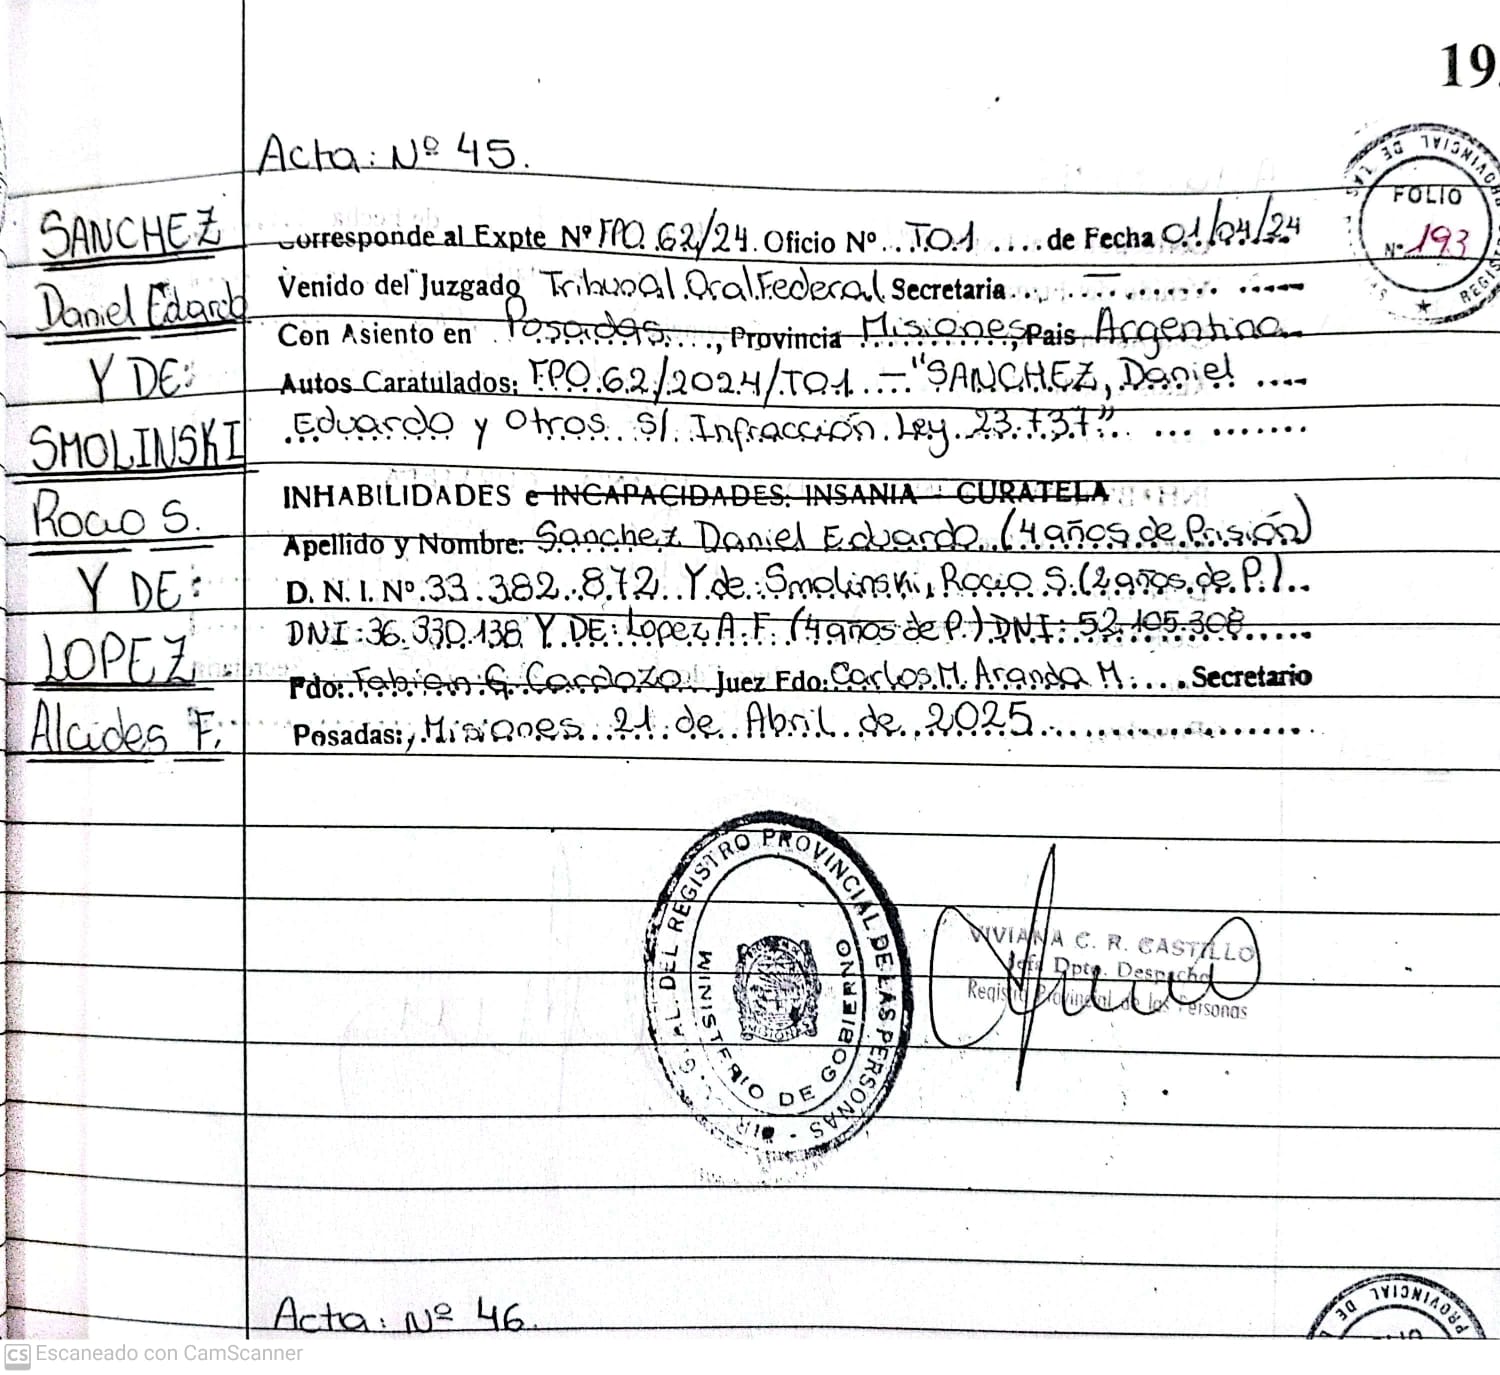 19
Acta: Nº 45.
PROVINCIAL DE LAS
FOLIO
Nº 193
REGIS
SANCHEZ
Daniel Eduardo
Y DE:
SMOLINSKI
Rocio S.
Y DE:
LOPEZ
Alcides F.
Corresponde al Expte Nº FPO. 62/24. Oficio Nº...TO1 .... de Fecha 01/04/24
Venido del Juzgado Tribunal Oral Federal Secretaria.. —
Con Asiento en Posadas...., Provincia Misiones, Pais Argentina
Autos Caratulados: FPO.62/2024/TO1 — "SANCHEZ, Daniel ....
Eduardo y Otros S/. Infracción Ley 23.737"... ... .......
INHABILIDADES e INCAPACIDADES: INSANIA - CURATELA
Apellido y Nombre: Sanchez Daniel Eduardo (4 años de Prisión)
D. N. I. Nº 33.382.872 Y de: Smolinski, Rocio S. (2 años de P.)..
DNI: 36.330.138 Y DE: Lopez A.F. (4 años de P.) DNI: 52.105.308
Fdo: Fabian G. Cardozo Juez Fdo: Carlos M. Aranda M. .... Secretario
Posadas:, Misiones 21 de Abril de 2025
DIR. GRAL. DEL REGISTRO PROVINCIAL DE LAS PERSONAS -
MINISTERIO DE GOBIERNO
MISIONES
VIVIANA C. R. CASTILLO
Jefa Dpto. Despacho
Registro Provincial de las Personas
Acta: Nº 46.
PROVINCIAL DE
CS Escaneado con CamScanner